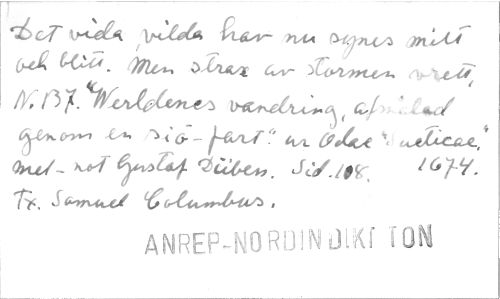 Det vida, vilda hav nu synes milt
och blitt. Men strax av stormen vrett,
N. 137. "Werldenes vandring, afmålad
genom en siö-fart." ur Odae Sueticae,"
mel-not Gustaf Düben. Sid. 108. 1674.
Tx. Samuel Columbus.
ANREP-NORDIN DIKT TON